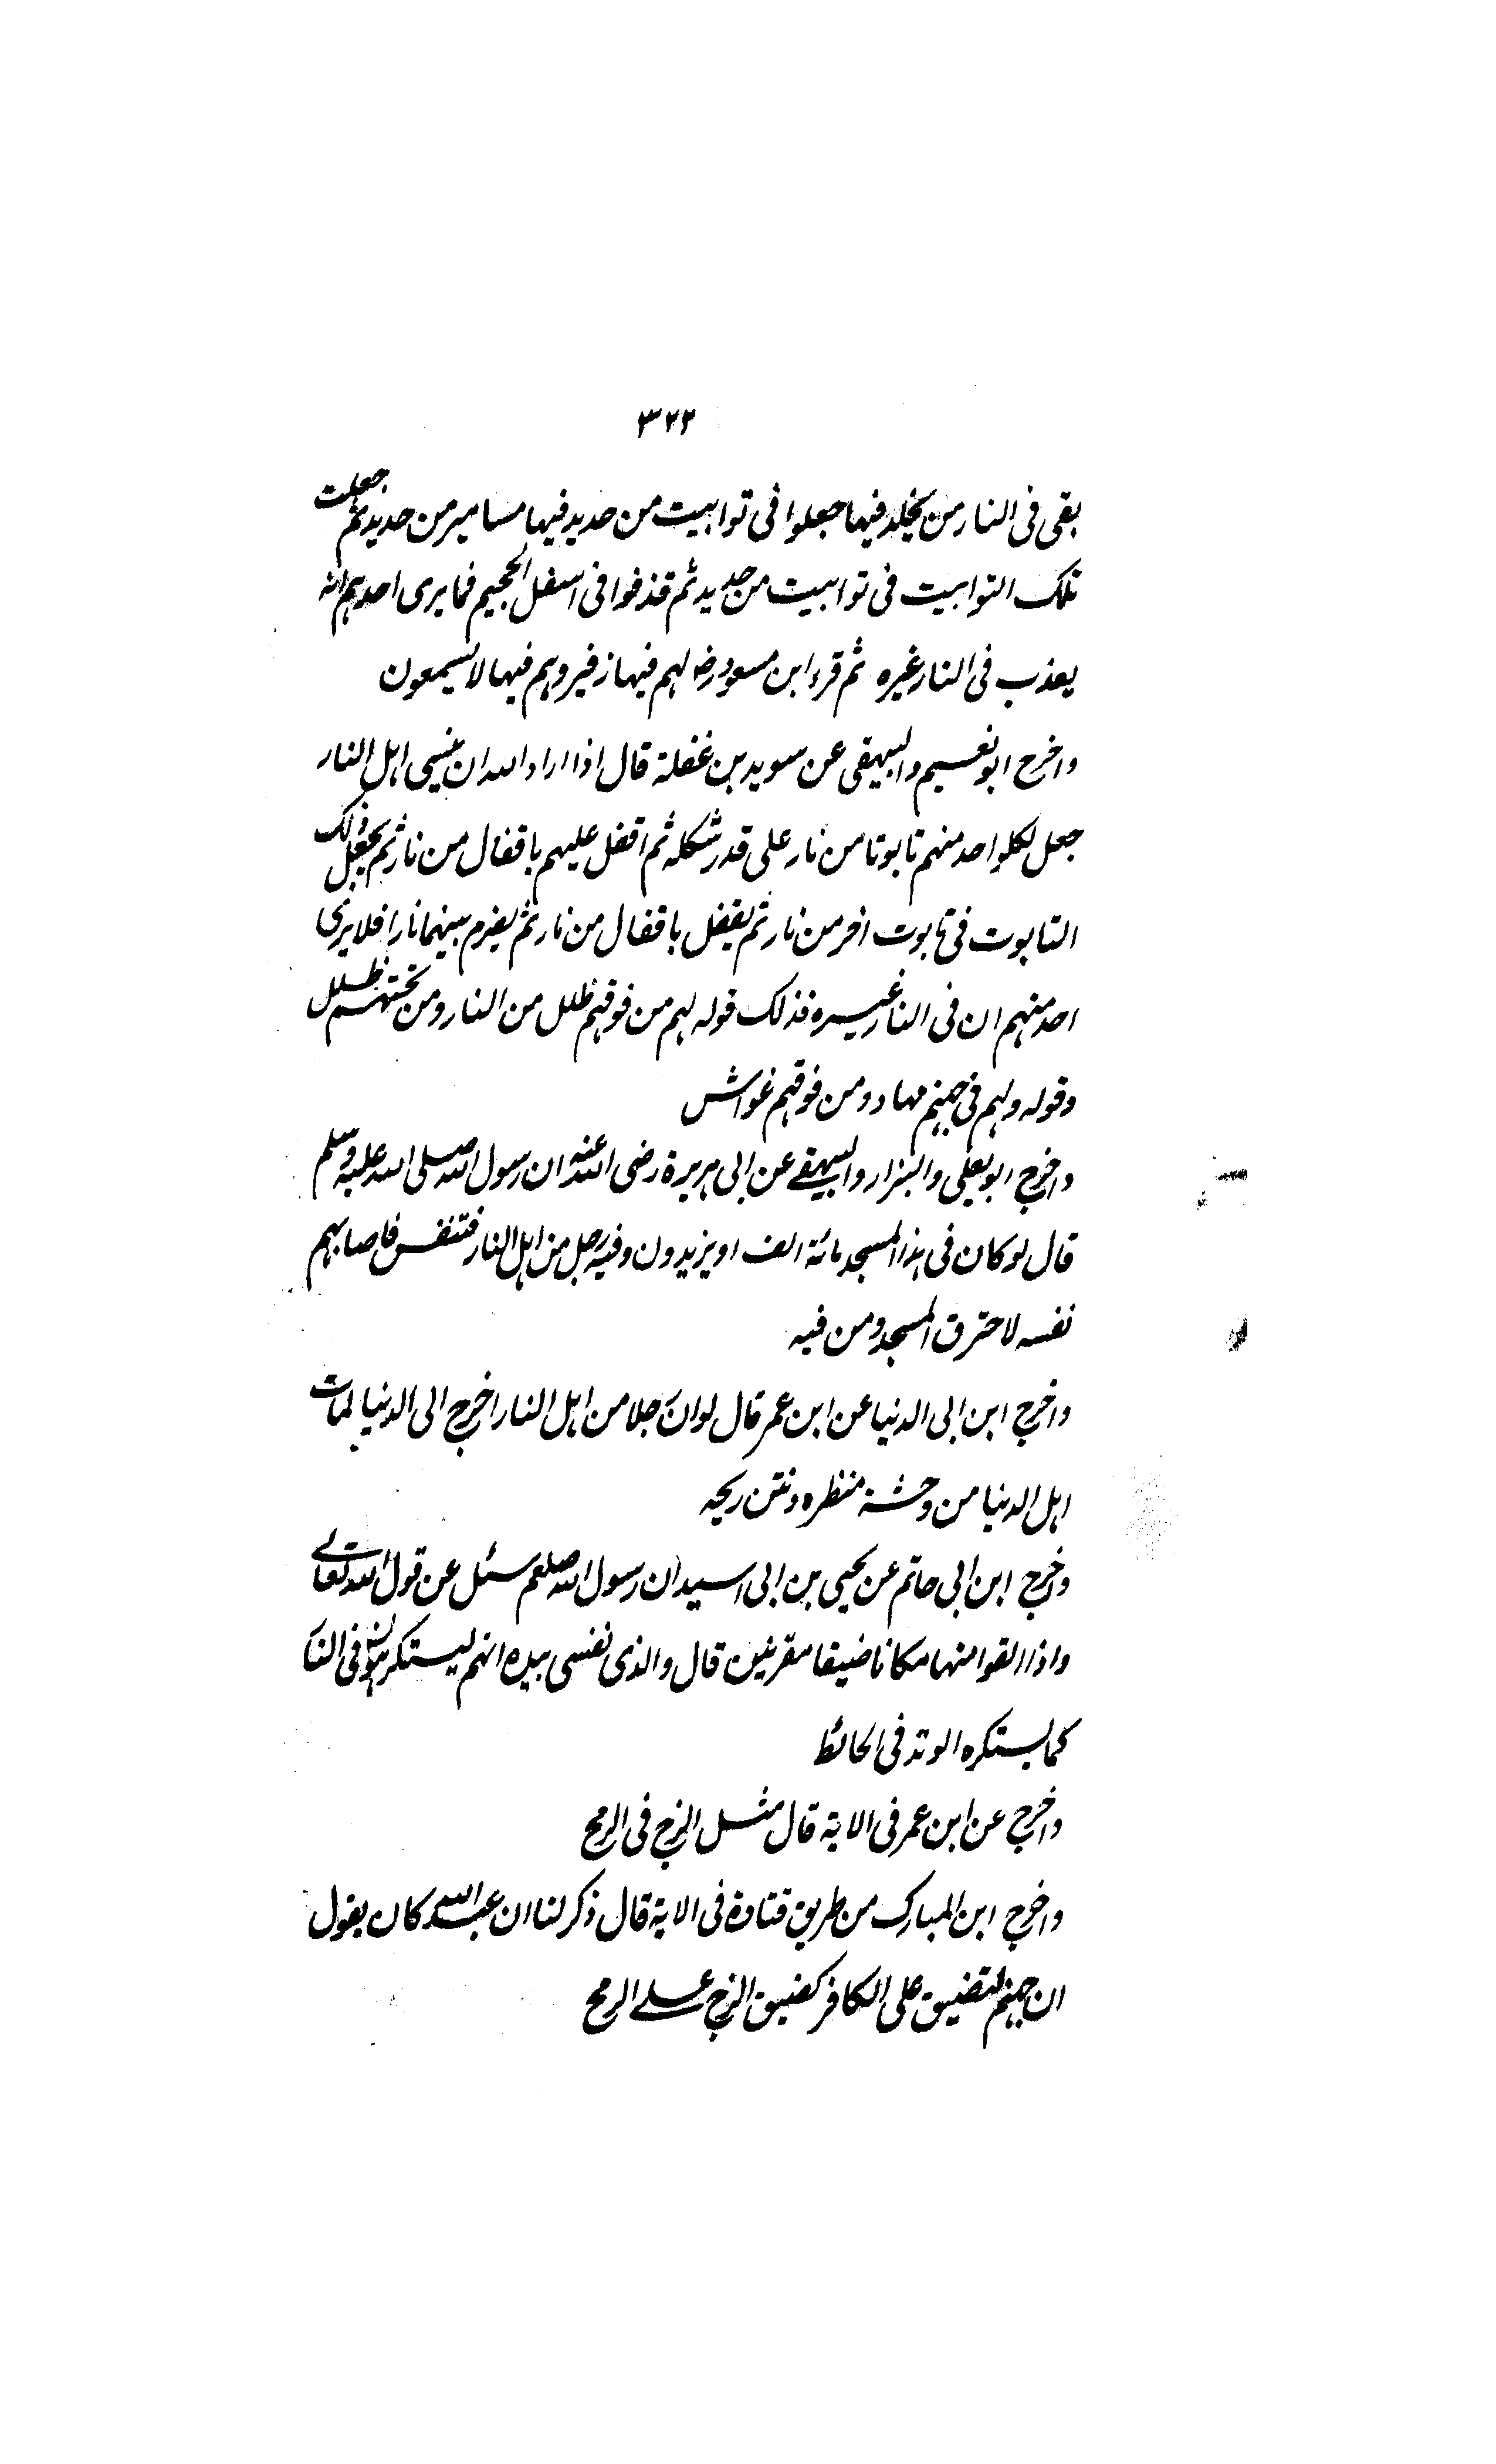 ٣٢٢
بقى فى النار من يخلد فيها جعلوا فى توابيت من حديد فيها مسامير من حديد ثم جعلت
تلك التوابيت فى توابيت من حديد ثم قذفوا فى اسفل الجحيم فما يرى احدهم انه
يعذب فى النار غيره ثم قرء ابن مسعود رضـ لهم فيها زفير وهم فيها لا يسمعون
واخرج ابو نعيم والبيهقى عن سويد بن غفلة قال اذا اراد الله ان ينسى اهل النار
جعل لكلواحد منهم تابوتا من نار على قدر شكله ثم اقفل عليهم باقفال من نار ثم يجعل ذلك
التابوت فى تابوت اخر من نار ثم يقفل باقفال من نار ثم يضرم بينهما نارا فلا يرى
احد منهم ان فى النار غيره فذلك قوله لهم من فوقهم ظلل من النار ومن تحتهم ظلل
وقوله ولهم فى جهنم مهاد ومن فوقهم غواش
واخرج ابو يعلى والبزار والبيهقے عن ابى هريرة رضى الله عنه ان رسول الله صلى الله عليه وسلم
قال لو كان فى هذا المسجد مائة الف او يزيدون وفيه رجل من اهل النار فتنفس فاصابهم
نفسه لاحترق المسجد ومن فيه
واخرج ابن ابى الدنيا عن ابن عمر قال لو ان رجلا من اهل النار اخرج الى الدنيا لمات
اهل الدنيا من وحشة منظره ونتن ريحه
واخرج ابن ابى حاتم عن يحيى بن ابى اسيد ان رسول الله صلعم سئل عن قول الله تعالے
واذا القوا منها مكانا ضيقا مقرنين قال والذى نفسى بيده انهم ليستكرهون فى النار
كما يستكره الوتد فى الحائط
واخرج عن ابن عمر فى الاية قال مثل الزج فى الرمح
واخرج ابن المبارك من طريق قتادة فى الاية قال ذكر لنا ان عبد الله كان يقول
ان جهنم لتضيق على الكافر كضيق الزج علے الرمح